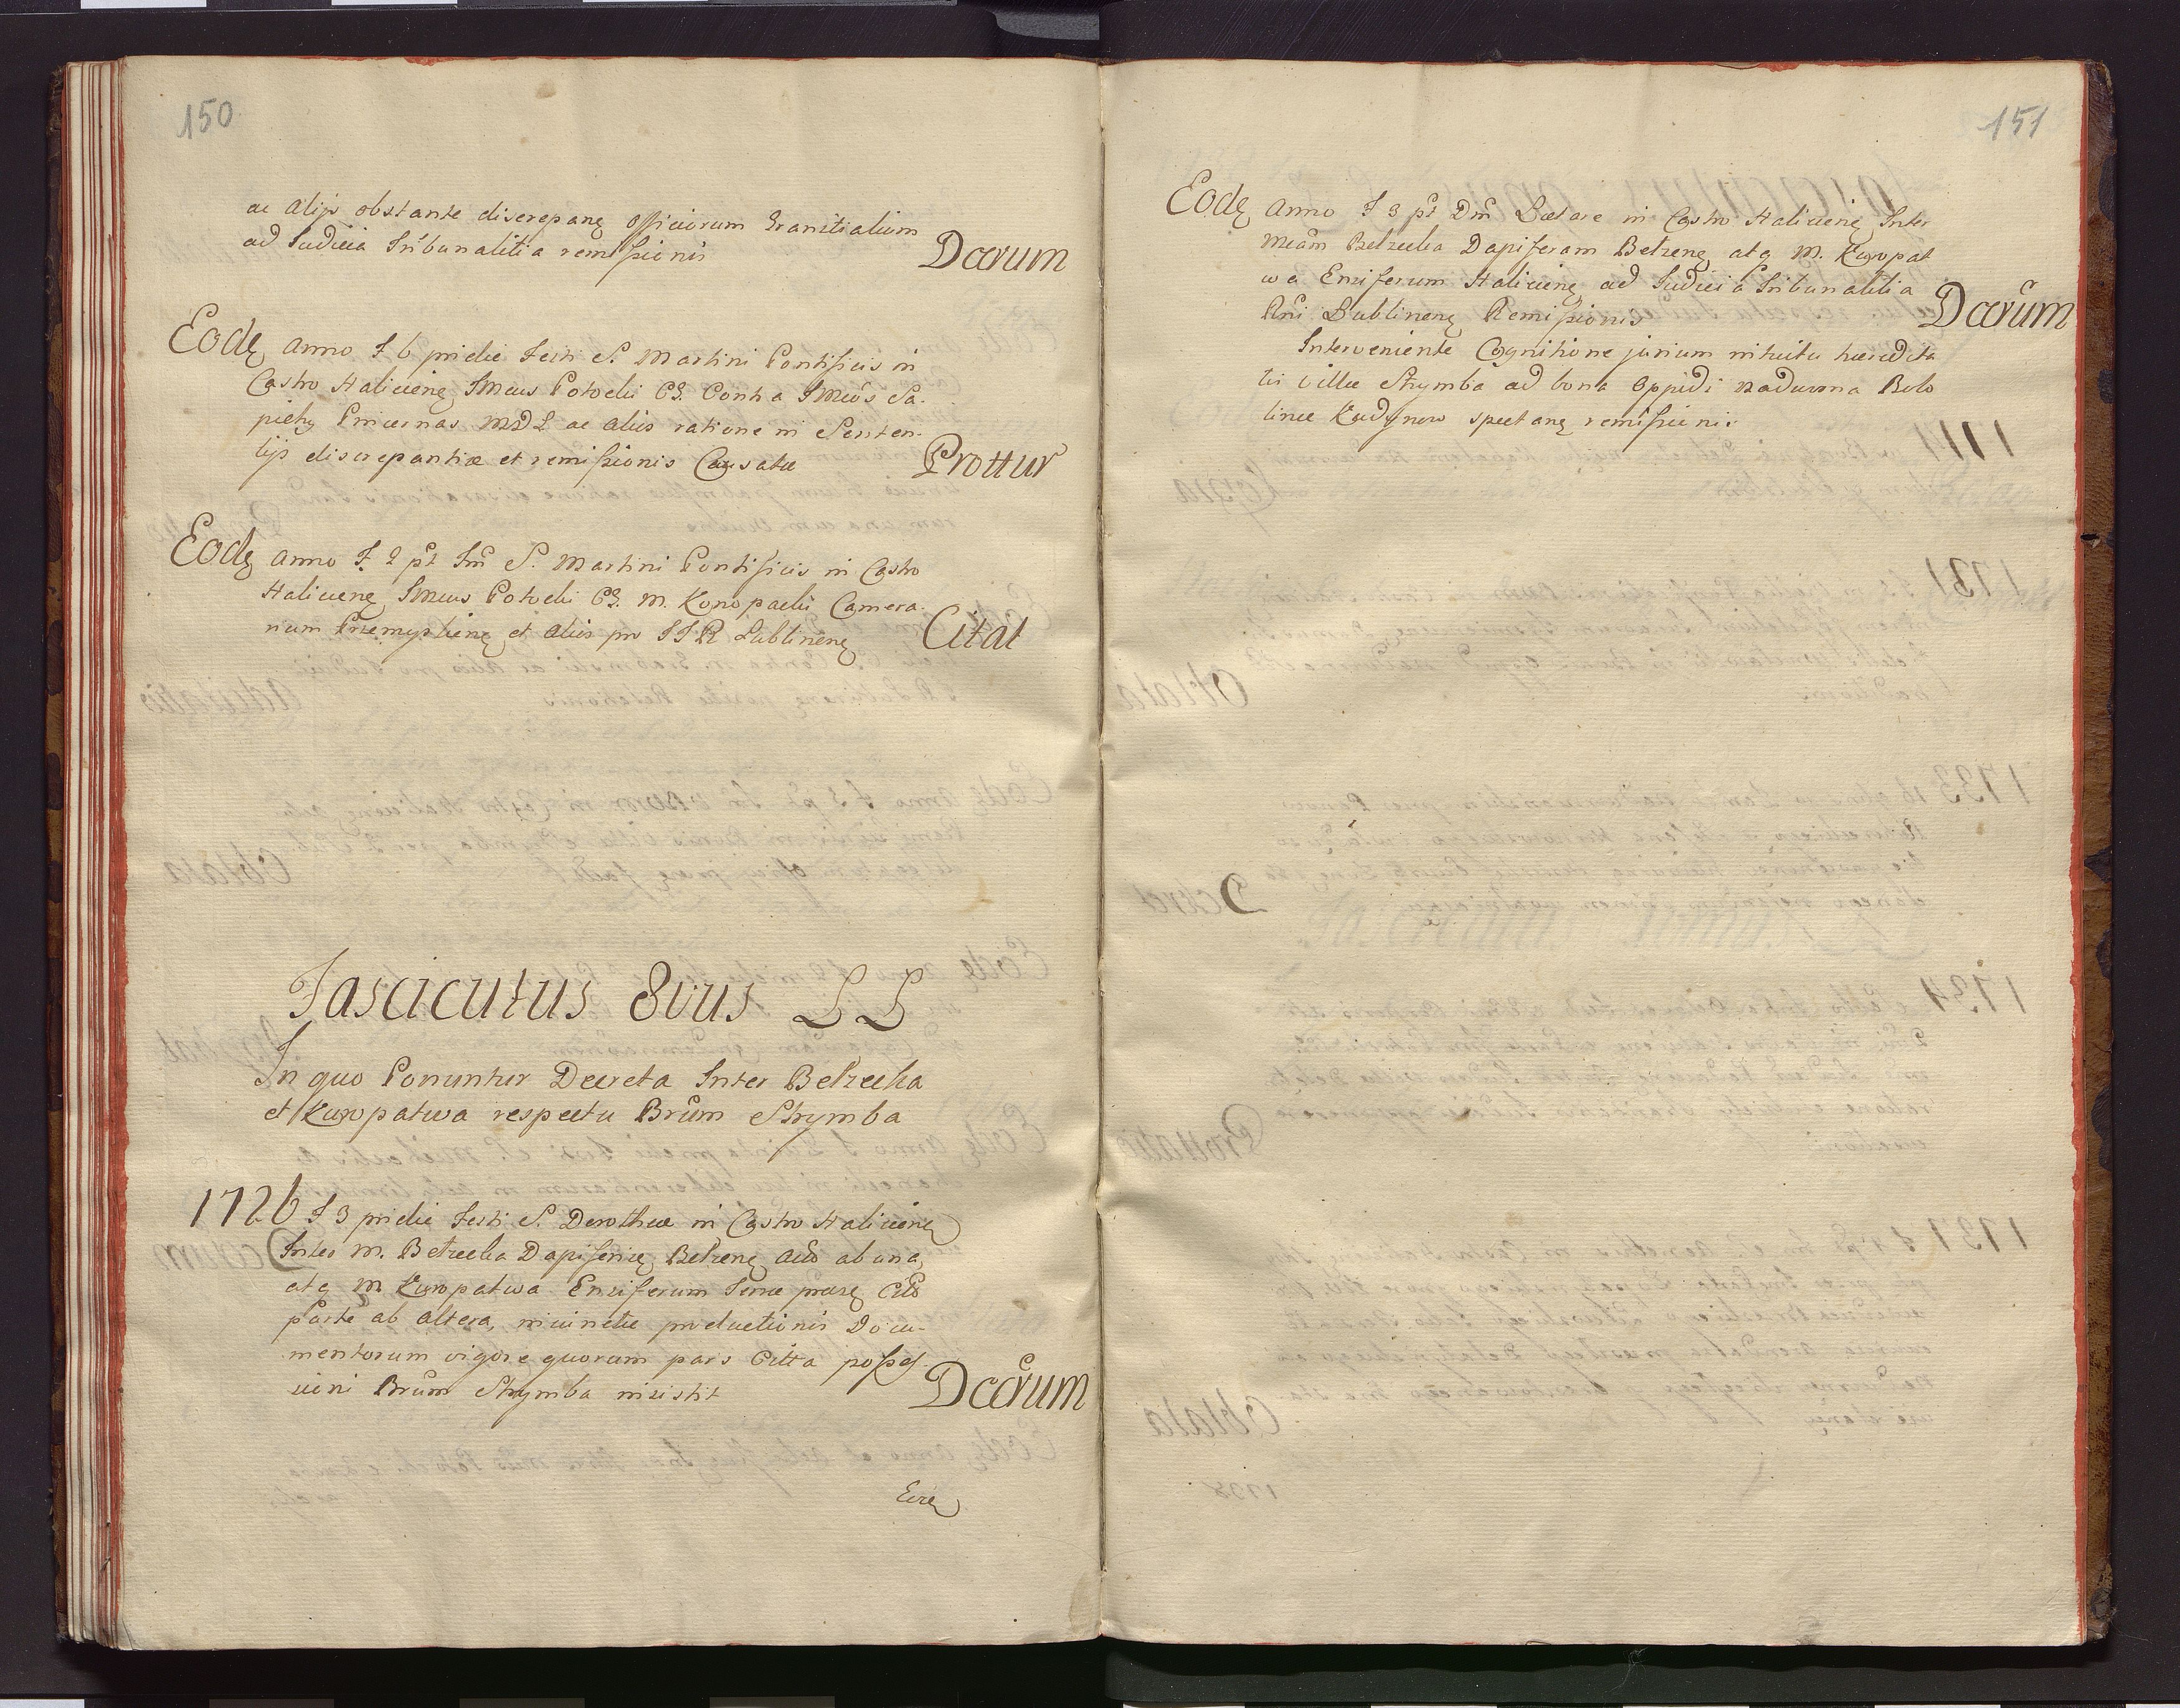 150
ac alijs obstante discrepanę officiorum Granitialium
ad Judicia Tribunalitia remissionis
Dcrum
Eodę anno F 6 pridie Festi S. Martini Pontificis in
Castro Halicienę Imcus Potocki CS. Contra Imcos Sa-
piehy Pincernas MDL ac alios ratione in Senten-
tijs discrepantiæ et remissionis Causatæ
Prottur
Eodę anno F. 2 pt Fm S. Martini Pontificis in Castro
Halicienę Imcus Potocki CS. M. Konopacki Camera-
num Præmyslienę et alios pro IT R Lublinenę
Citat
Fasciculus 8vus LL
In quo Ponuntur Decreta Inter Belzecka
et Kuropatwa respectu Brum Strymba
1726 F 3 pridie Festi S. Dorotheæ in Castro Halicienę
Inter M. Belzecka Dapiferię Belzenę Acto ab una,
atq M Kuropatwa Ensiferum Terræ præse Citto
parte ab altera, iniunctæ productionis Docu-
mentorum vigore quorum pars Citta posses-
sioni Brum Strymba insistit
Dcrum
Eorę
151
Eodę anno F 3 pt Dm Lætare in Castro Halicienę Inter
Mcam Belzecka Dapiferam Belzenę atq M. Kuropat
wa Ensiferum Halicienę ad Judicia Tribunalitia
Rni Lublinenę Remissionis
Dcrum
Interveniente Cognitione jurium intuitu hæredita
tis villæ Strymba ad bona Oppidi Nadworna
lince spectanę remissionis